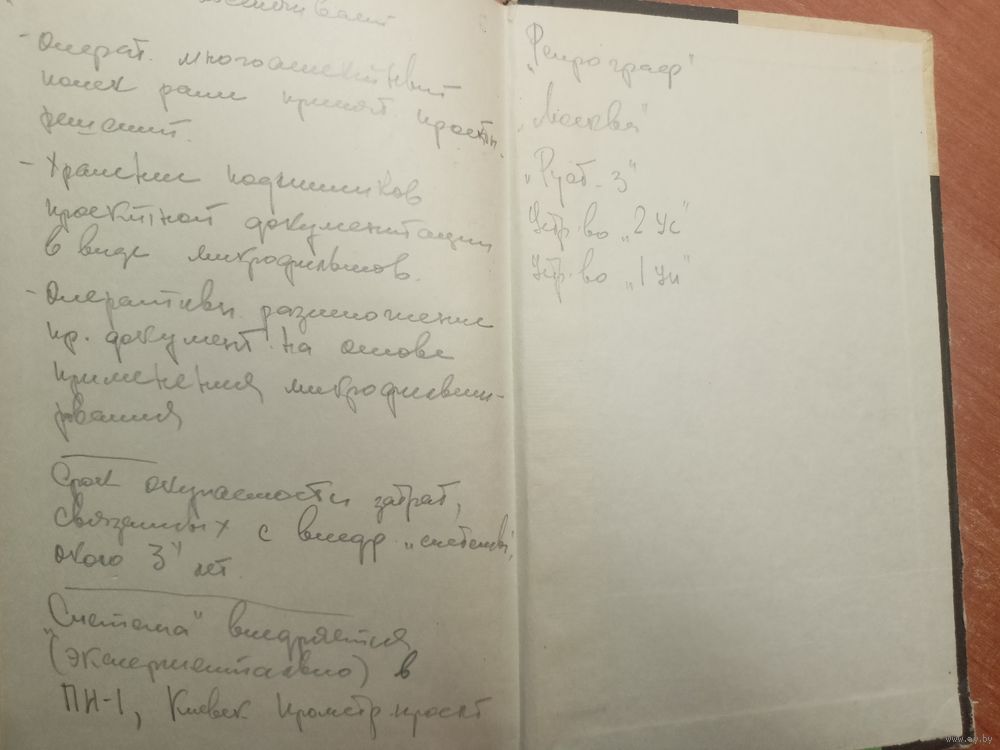 - Операт. многоаспектный
поиск ранее принят. проектн.
решений.
- Хранение подлинников
проектной документации
в виде микрофильмов.
- Оперативн. размножение
пр. документ. на основе
применения микрофильми-
рования
Срок окупаемости затрат,
связанных с внедр. "системы",
около 3х лет.
"Система" внедряется
(экспериментально) в
ПИ-1, Киевск. Промстройпроект
"Репрограф"
"Москва"
"Рут-3"
Устр-во "2 УС"
Устр-во "1 УП"
www.ay.by